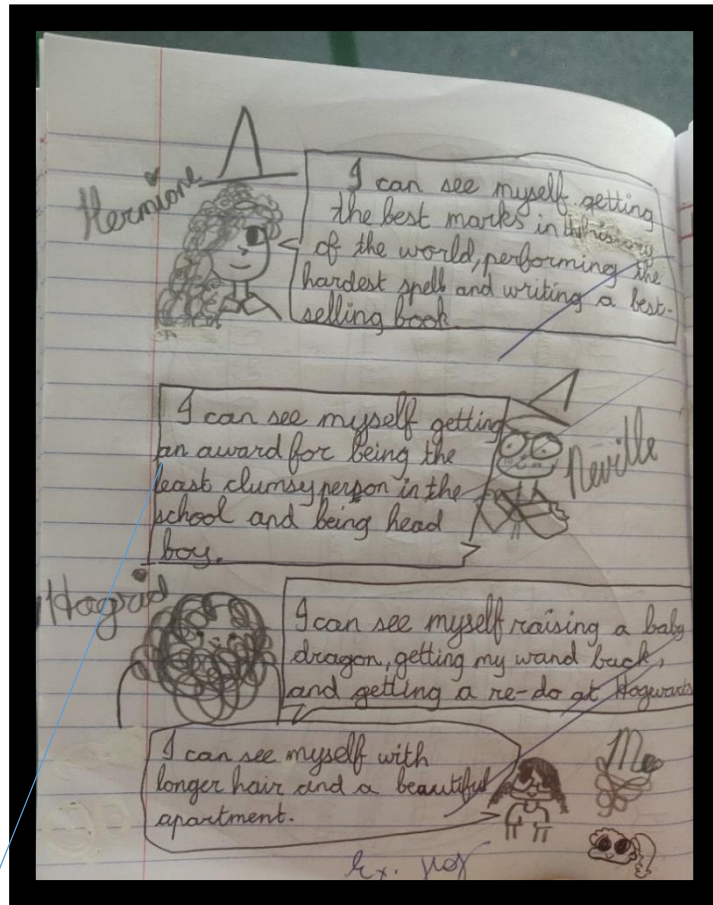 Hermione
I can see myself getting
the best marks in the history
of the world, performing the
hardest spell and writing a best-
selling book.
I can see myself getting
an award for being the
least clumsy person in the
school and being head
boy.
Neville
Hagrid
I can see myself raising a baby
dragon, getting my wand back,
and getting a re-do at Hogwarts
I can see myself with
longer hair and a beautiful
apartment.
Me